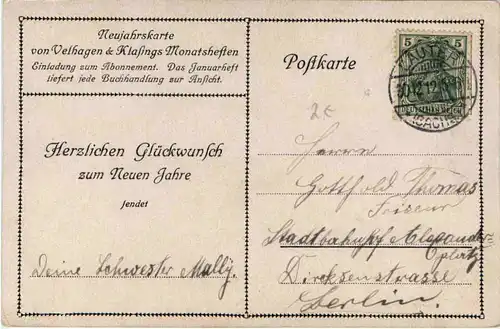 Neujahrskarte
von Velhagen & Klasings Monatsheften
Einladung zum Abonnement. Das Januarheft
liefert jede Buchhandlung zur Ansicht.
Herzlichen Glückwunsch
zum Neuen Jahre
sendet
Deine Schwester Mally.
Postkarte
5 5
LAUTER
(SACHSEN)
2€
Herrn
Gotthold Thomas
Friseur
Stadtbahnhf Alexander
platz
Dircksenstrasse
Berlin.